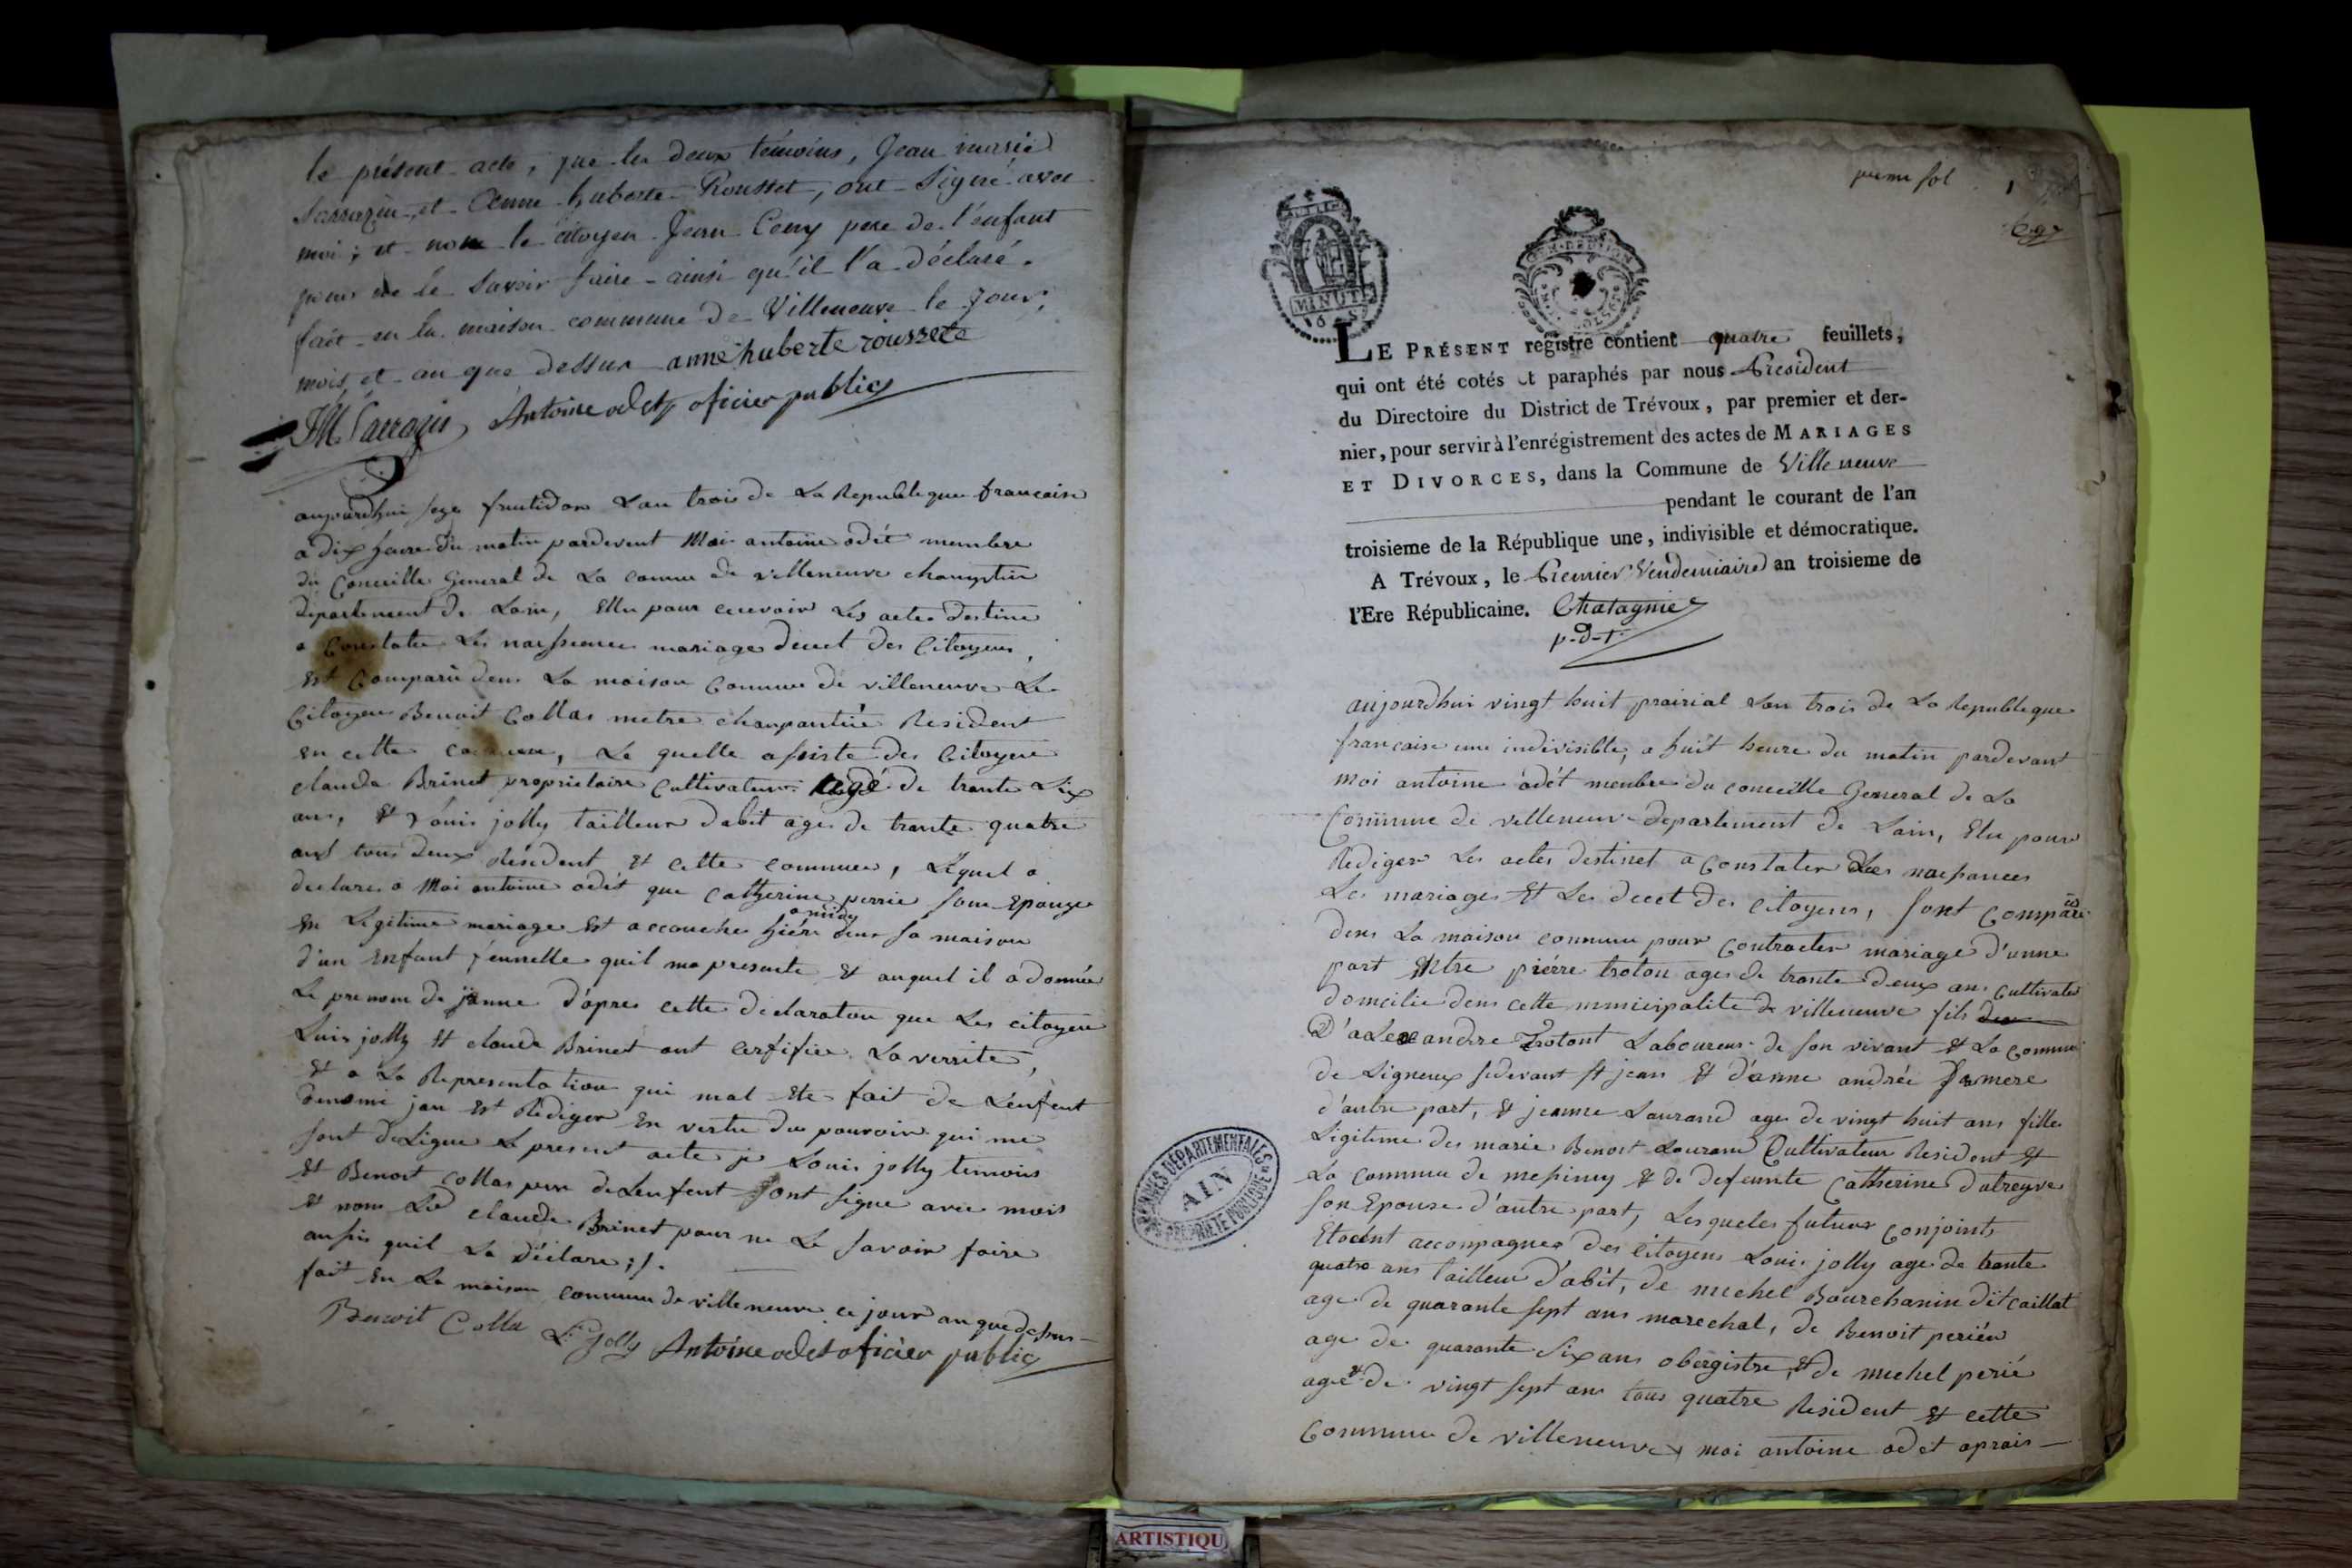 le présent acte, que les deux témoins, Jean marie
Sarrazin, et Anne huberte Rousset, ont signé avec
moi; et non le citoyen Jean Ceny pere de l'enfant
pour ne le savoir faire ainsi qu'il l'a déclaré.
fait en la maison commune de Villeneuve le jour,
mois, et an que dessus anne huberte roussete
JM Sarrazin Antoine odet oficier public
aujourdhui seze fruttidor Lan trois de La Republique francaise
a dix heure du matin pardevent Moi antoine odét membre
du Conseille General de La comune de villeneuve champtin
departement de Lain, Ellu pour recevoir Les actes destine
a Constater Les naissances mariage decet des Citoyens,
Est Comparû dens La maison Commune de villeneuve Le
Citoyen Benoit Collas metre charpantiée Resident
en cette commune, Le quelle assiste des Citoyens
claude Brinet proprietaire Cultivateur agé de trante Six
ans, Et Louis jolly tailleur dabit age de trante quatre
ans tous deux Résident Et cette commune, Lequel a
declare a Moi antoine odét que Catherine perrie son Epouze
en Legitime mariage Est accouche hiére a midy dens sa maison
d'un Enfant femmelle quil ma presente Et auquel il a donnée
Le prenom de janne d'apres cette declaraton que Les citoyens
Luis jolly Et claude Brinet ont certifiee La verrite,
Et a La Representation qui mat Ete fait de L'enfent
denomé jau Est Rédiger En vertu du pouvoir qui me
sont deLigue Le present acte je Louis jolly temoins
Et Benoit collas pere deLenfent sont signe avec mois
Et nom Led claude Brinet pour ne Le savoir faire
aussis quil La déclare;/.
fait en La maison commune de ville neuve ce jour an que dessus
Benoit Colla L. Jolly Antoine odet oficier public
preme fol 1
LE PRÉSENT registre contient quatre feuillets,
qui ont été cotés et paraphés par nous President
du Directoire du District de Trévoux, par premier et der-
nier, pour servir à l'enrégistrement des actes de MARIAGES
ET DIVORCES, dans la Commune de Ville neuve
pendant le courant de l'an
troisieme de la République une, indivisible et démocratique.
A Trévoux, le Premier Vendemiaire an troisieme de
l'Ere Républicaine. Chatagnier
p-d-t
MINUT
aujourdhui vingt huit prairial Lan trois de La Republeque
francaise une indivisible, a huit heure du matin pardevant
Moi antoine odét membre du conseille General de La
Commune de villeneuve departement de Lain, Elu pour
Rediger Les actes destinet a Constater Les naissances
Les mariages Et Les decet des citoyens, sont Comparu
dens La maison commune pour Contracter mariage d'unne
part Entre piérre trotou age de trante deux ans Cultivateu
domcilie dens cette municipalite de villeneuve fils
D'alexandre Trotont Laboureur de son vivant Et La Commu
de Ligneux sidevant st jean Et d'anne andrée sa mere
d'autre part, Et jeanne Laurand age de vingt huit ans fille
Ligitime des marie Benoit Lourand Cultivateur Resident Et
La Commune de mesimy Et de defeunte Catherine Dutreyve
son Epouse d'autre part, Lesqueles futures Conjoints
Etoient accompagnes des citoyens Louis jolly age de trante
quatre ans tailleur d'abit, de michel Bourchanin dit caillat
age de quarante sept ans marechal, de Benoit periée
age de quarante six ans obergistre, Et de michel perié
agé de vingt sept ans tous quatre Resident Et cette
Commune de villeneuve moi antoine odet aprais
ARCHIVES DÉPARTEMENTALES
AIN
PROPRIÉTÉ PUBLIQUE
ARTISTIQU